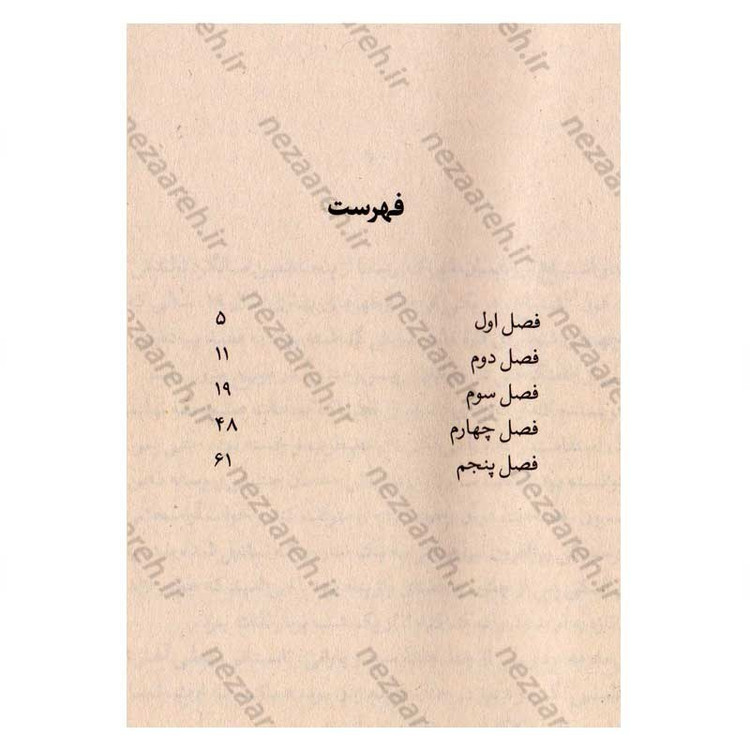 فهرست
فصل اول ۵
فصل دوم ۱۱
فصل سوم ۱۹
فصل چهارم ۴۸
فصل پنجم ۶۱
nezaareh.ir